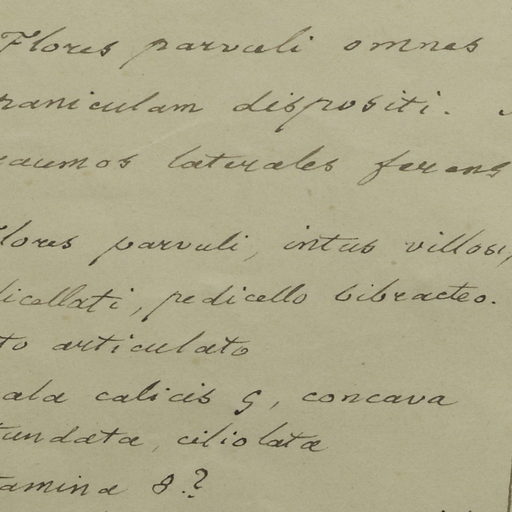 Flores parvuli omnes
paniculam dispositi.
racemos laterales ferens
Flores parvuli, intus villosi,
dicellati, pedicello bibracteo.
to articulato
ala calicis 5, concava
tundata, ciliolata
tamina 8.?